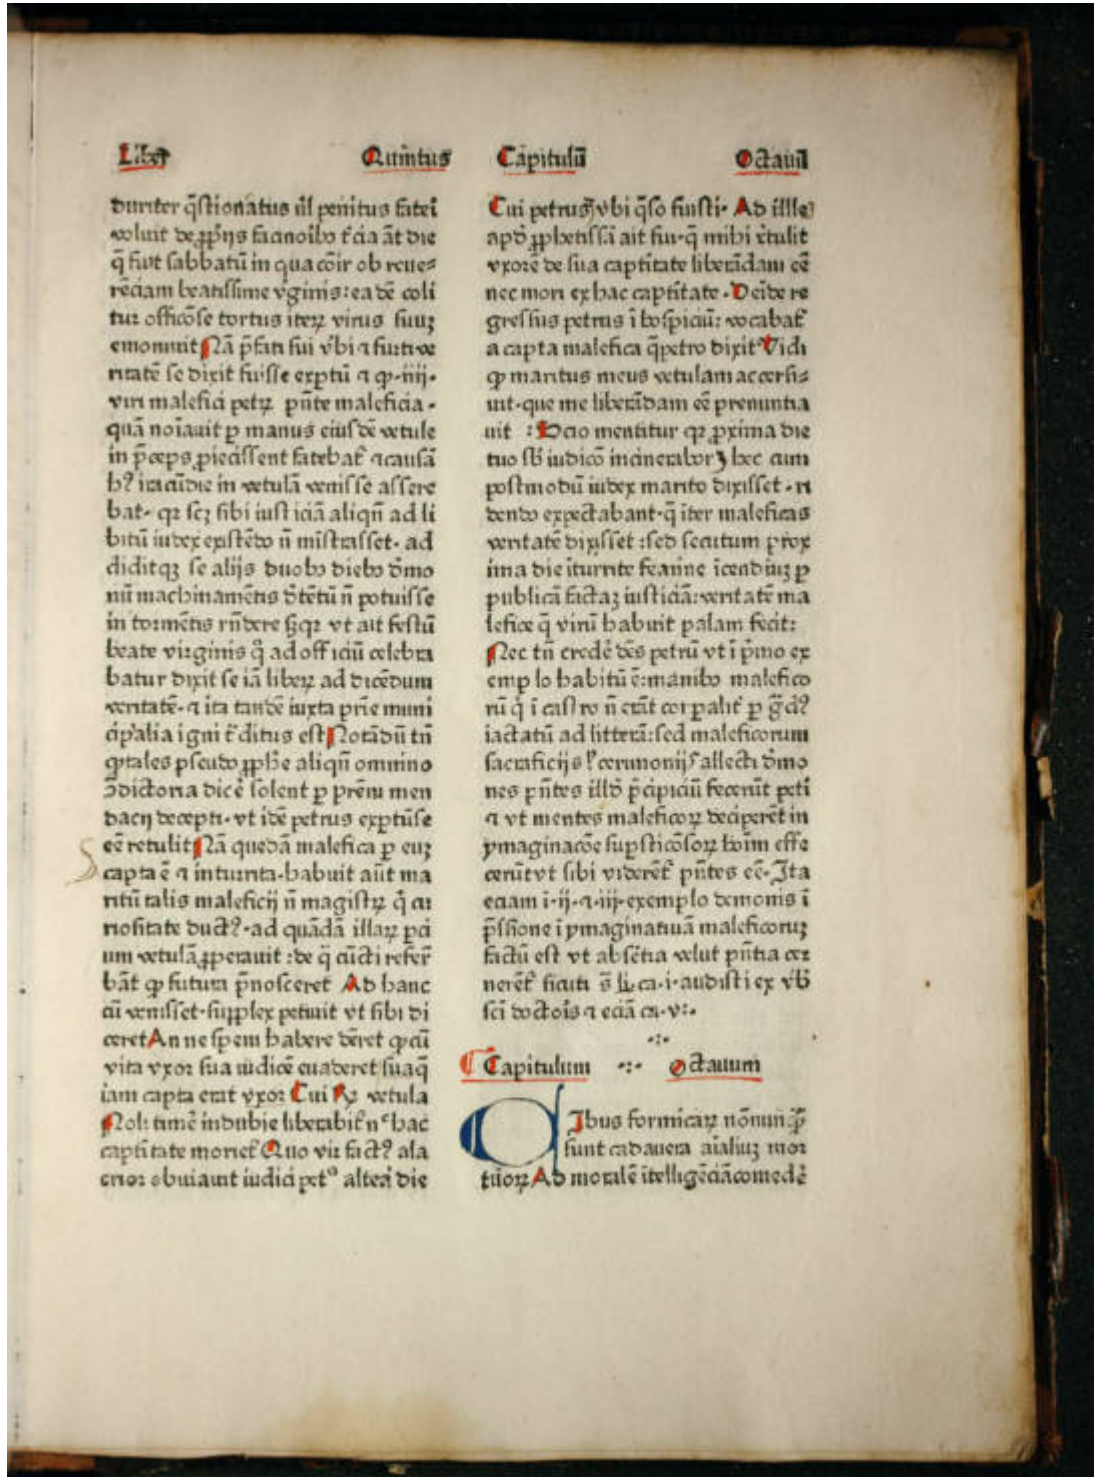 Liber Quintus Capitulū Octauū
duriter q̄stionatus nil penitus fateri
voluit de ꝓprijs facinoribꝰ t̄cia āt die
q̄ fuit sabbatū in qua cōir ob reue⸗
rēciam beatissime v̓ginis: eadē coli
tur officōse tortus iterꝝ virus suuꝫ
emomuit Nā p̄fati sui v̓bi ⁊ furti ve
ritatē se dixit fuisse exptū ⁊ ꝙ·iiij·
viri malefici petꝝ pn̄te malefícia·
quā noīauit ꝑ manus eiusdē vetule
in p̄ceps ꝓiecissent fatebat̄ ⁊causā
hꝰ iracūdie in vetulā venisse assere
bat· qꝛ scꝫ sibi iusticiā aliqn̄ ad li
bitū iudex existēdo n̄ mīstrasset· ad
diditqꝫ se alijs duobꝰ diebꝰ dēmo
nū machinamētis dētētū n̄ potuisse
in tormētis rn̄dere sꝫqꝛ vt ait festū
beate virginis q̄ ad officiū celebra
batur dixit se iā liberꝝ ad dicēdum
veritatē· ⁊ ita tandē iuxta prīe muni
cipalia igni t̄ditus est Notādū tn̄
ꝙ tales pseudo ꝓph̄e aliqn̄ omnino
ↄ̄dictoria dicē solent ꝑ prēm men
dacij decepti· vt idē petrus exptūse
eē retulit Nā quedā malefica ꝑ euꝫ
capta ē ⁊ inturrita· habuit aūt ma
ritū talis maleficij n̄ magistꝝ q̄ cu
riositate ductꝰ· ad quādā illaꝝ ꝑci
um vetulā ꝓperauit: de q̄ cūcti refer̄
bāt ꝙ futura p̄nosceret Ad hanc
cū venisset· supplex petiuit vt sibi di
ceret An ne spem habere dēret ꝙ cū
vita vxor sua iudicē euaderet suaq̄
iam capta erat vxor Cui ℟ vetula
Noli timē indubie liberabit̄ n̄ᶜ hac
captītate moriet̄ Quo vir factꝰ ala
crior obuiauit iudici petᵒ alteā die
Cui petrus v̓bi q̄so fuisti· Ad ille
apd̄ ꝓphetissā ait fui· q̄ mihi r̄tulit
vxorē de sua captītate liberādam eē
nec mori ex hac captītate· Deīde re
gressus petrus ī hospiciū: vocabat̄
a capta malefica q̄ petro dixit Vidi
ꝙ maritus meus vetulam accersi⸗
uit· que me liberādam eē prenuntia
uit : Scio mentitur qꝛ ꝓxima die
tuo sb̄ iudicō incinerabor hec cum
postmodū iudex marito dixisset· ri
dendo expectabant· q̄ īter maleficas
veritatē dixisset: sed secutum prox
ima die īturrite femīne īcendiuꝫ ꝑ
publicā factaꝫ iusticiā: veritatē ma
lefice q̄ virū habuit palam fecit:
Nec tn̄ credē dēs petrū vt ī p̄mo ex
emplo habitū ē: manibꝰ malefico
rū q̄ ī castro n̄ erāt corꝑalit̄ ꝑ gͣdꝰ
iactatū ad litterā: sed maleficorum
sacrificijs l̓ cerimonijs allecti dēmo
nes pn̄tes illd̄ p̄cipiciū fecerūt petī
⁊ vt mentes maleficoꝝ deciperēt in
ymaginacōe suꝑsticōsoꝝ hoīm effe
cerūt vt sibi viderēt̄ pn̄tes eē· Ita
eciam ī·ij·⁊·iij·exemplo demonis ī
p̄ssione ī ymaginatiuā maleficoruꝫ
factū est vt absētia velut pn̄tia cer
nerēt̄ sicuti s̄ li· ca·i·audisti ex v̓b̄
scī doctoīs ⁊ eciā ca·v:·
Capitulum Octauum
Ibus formicaꝝ nōnunꝙ̄
sunt cadauera aīaliuꝫ mor
tuoꝝ Ad moralē ītelligēciā comedē